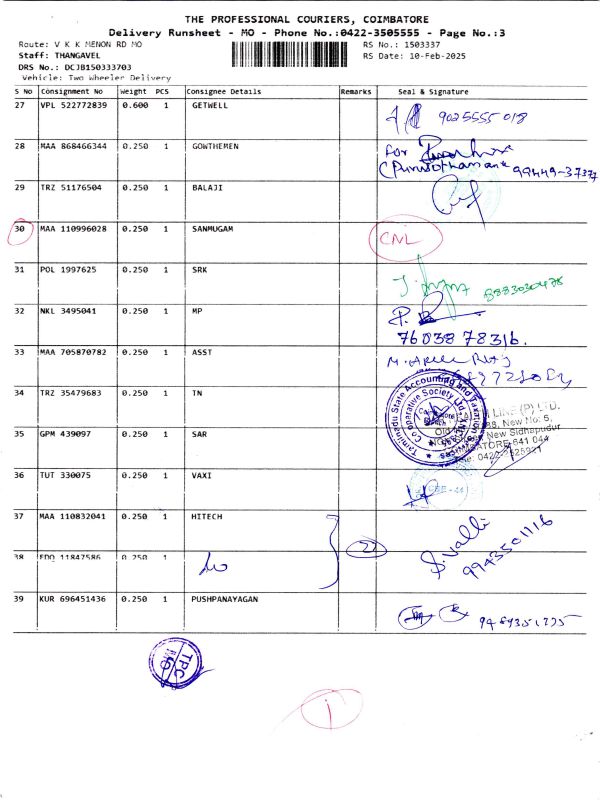 THE PROFESSIONAL COURIERS, COIMBATORE
Delivery Runsheet - MO - Phone No.:0422-3505555 - Page No.:3
Route: V K K MENON RD MO RS No.: 1503337
Staff: THANGAVEL RS Date: 10-Feb-2025
DRS No.: DCJB150333703
Vehicle: Two Wheeler Delivery
S No Consignment No Weight PCS Consignee Details Remarks Seal & Signature
27 VPL 522772839 0.600 1 GETWELL 9025555018
28 MAA 868466344 0.250 1 GOWTHEMEN for
99449-37377
29 TRZ 51176504 0.250 1 BALAJI
30 MAA 110996028 0.250 1 SANMUGAM CNL
31 POL 1997625 0.250 1 SRK
32 NKL 3495041 0.250 1 MP
76038 78316.
33 MAA 705870782 0.250 1 ASST
34 TRZ 35479683 0.250 1 TN
Tamilnadu State Accounting and Taxation
Co-operative Society Ltd.
LINE (P) LTD.
New No: 5,
New Sidhapudur
641 044
35 GPM 439097 0.250 1 SAR
36 TUT 330075 0.250 1 VAXI
37 MAA 110832041 0.250 1 HITECH
S. Valli
9943501116
38 EDO 11847586 0.250 1
39 KUR 696451436 0.250 1 PUSHPANAYAGAN
TPC
MO
1